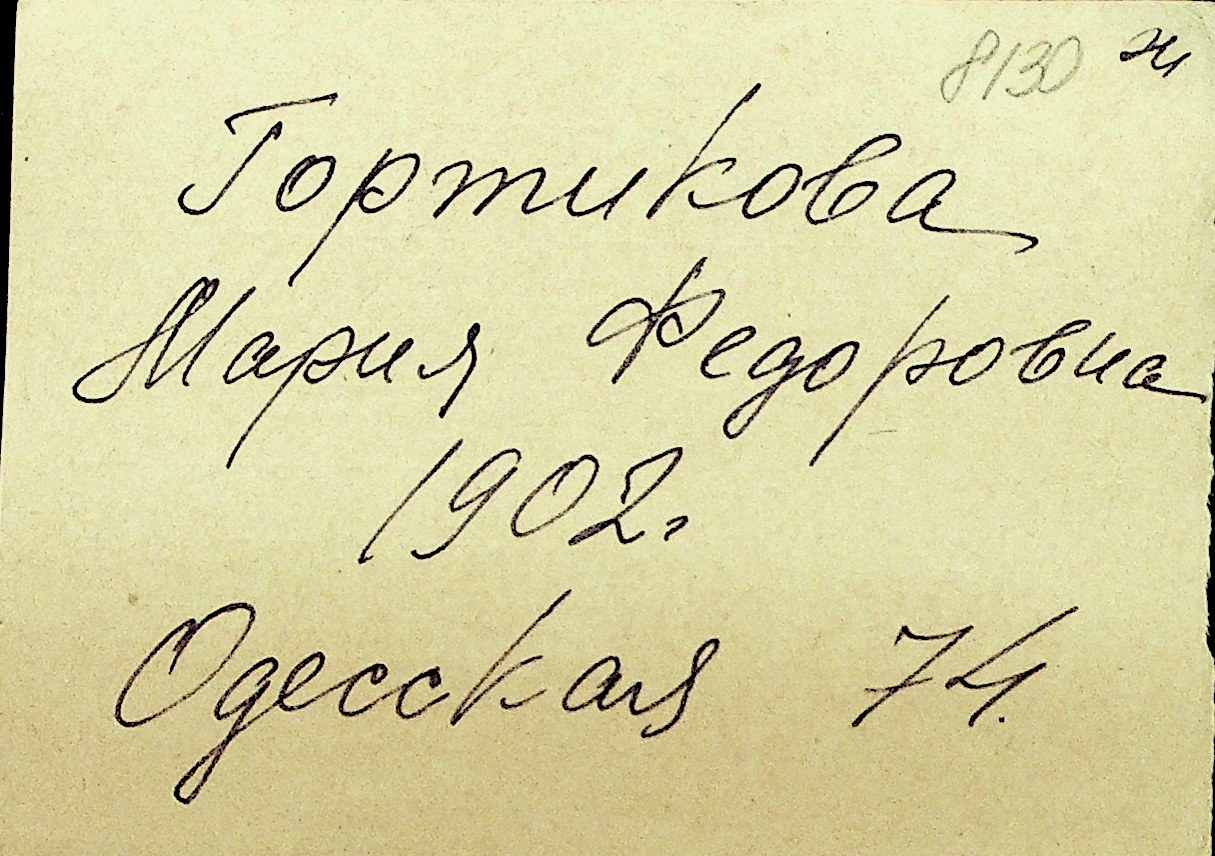 8130 ж
Гортикова
Мария Федоровна
1902г
Одесская 74.